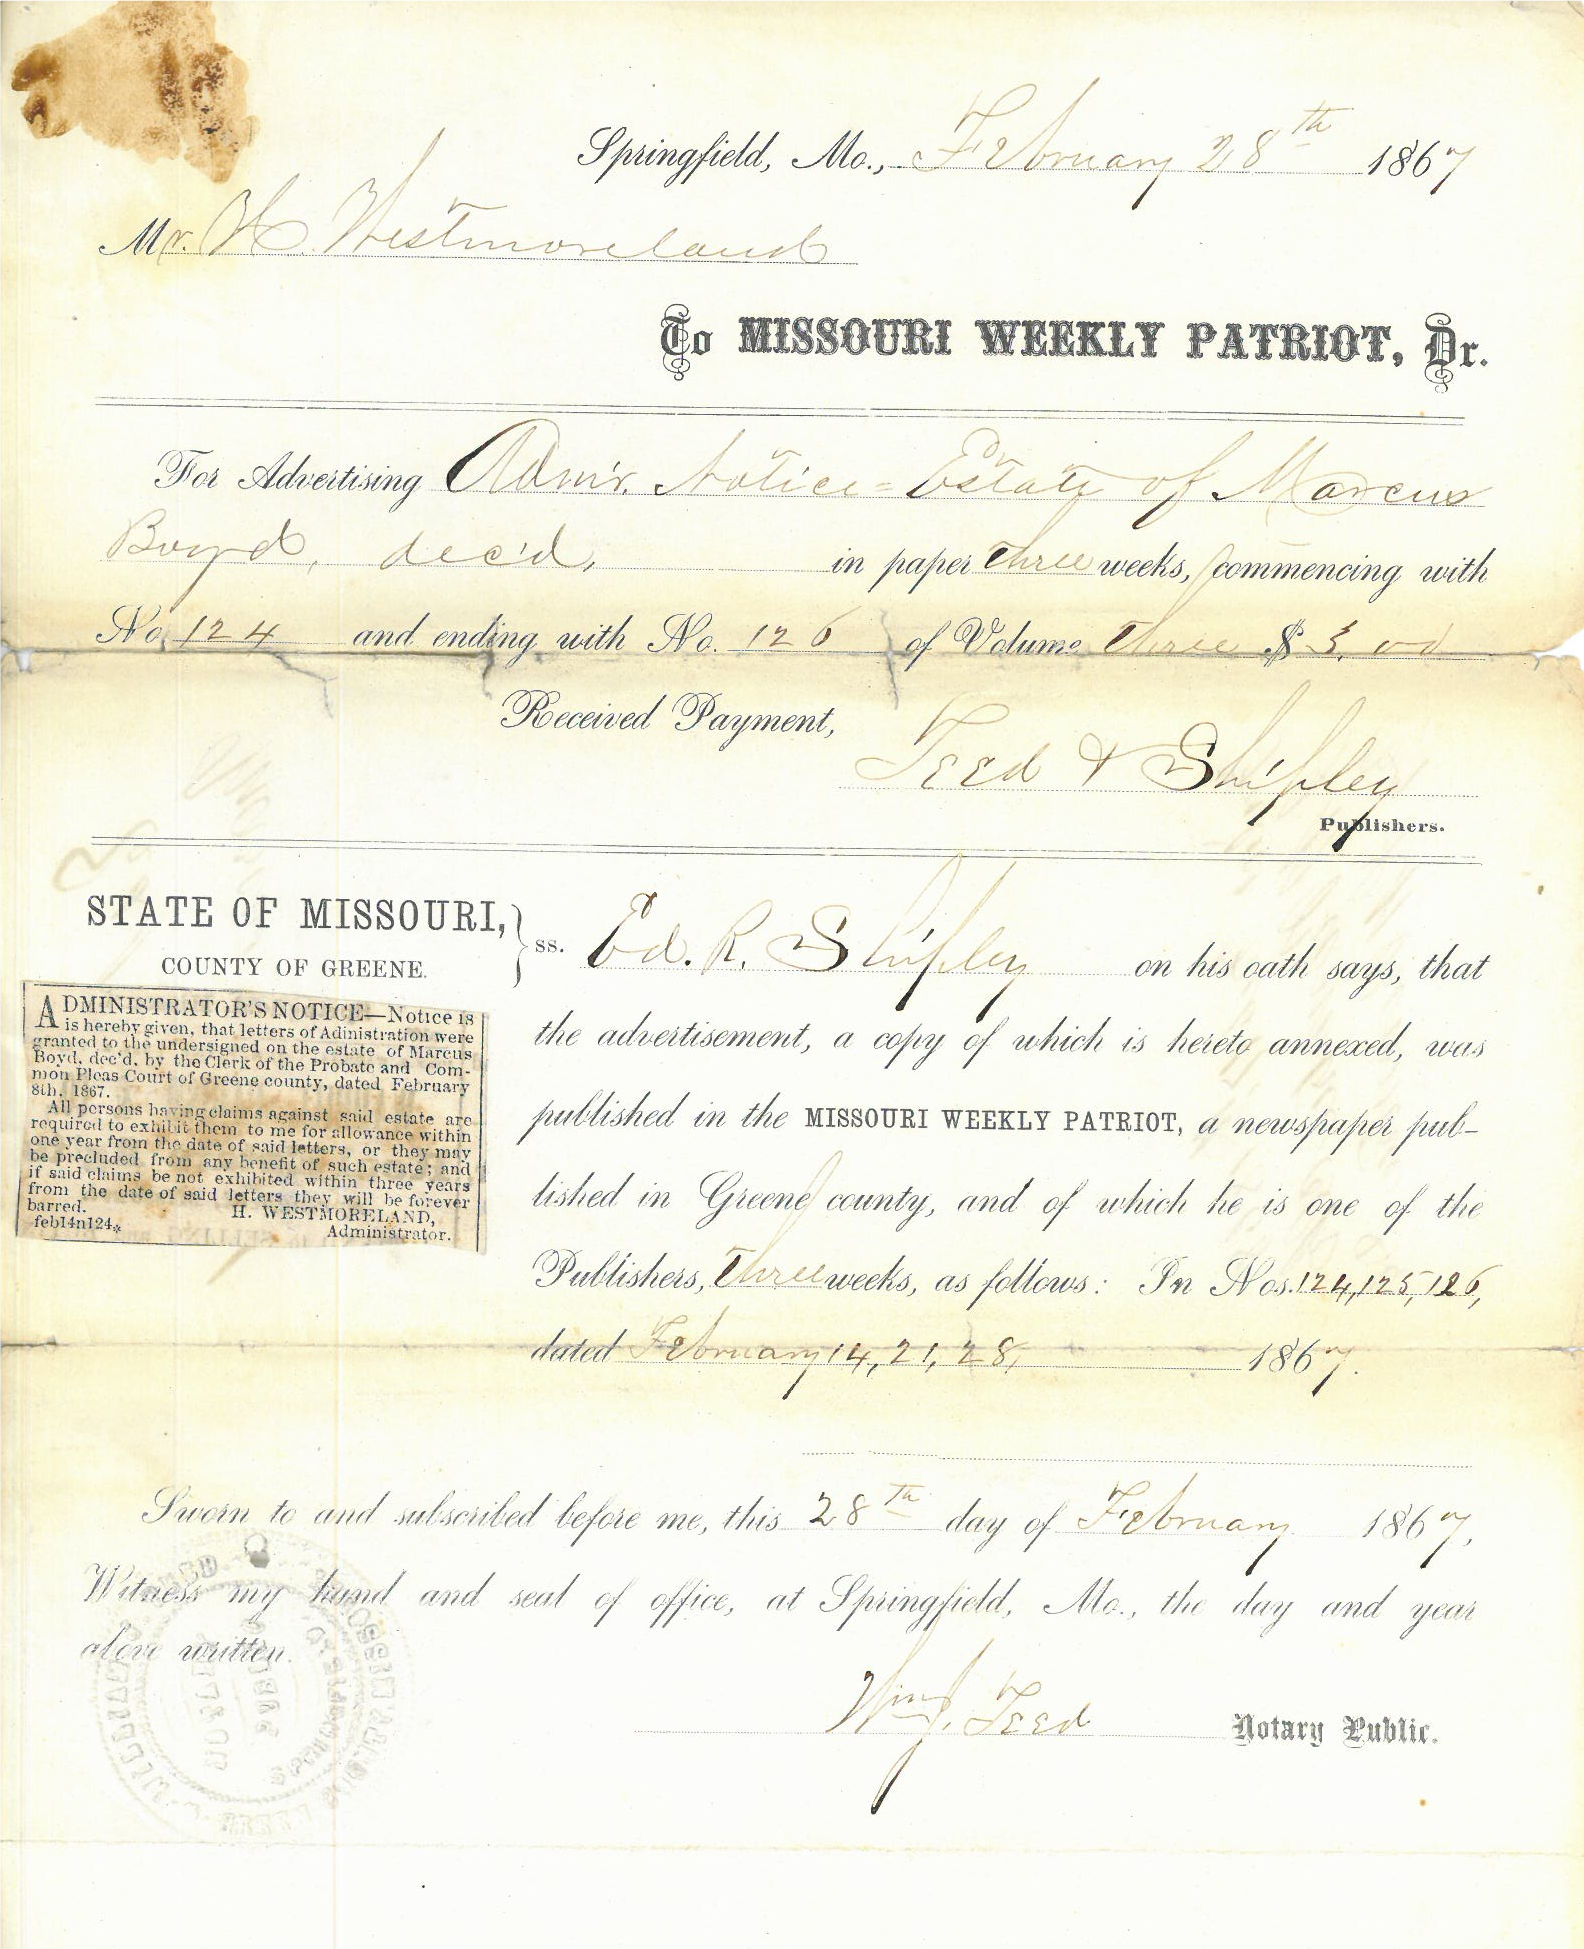 Springfield, Mo., February 28th 1867
Mr. H. Westmoreland
To MISSOURI WEEKLY PATRIOT, Dr.
For Advertising Admr. Notice = Estate of Marcus
Boyd, dec'd, in paper three weeks, commencing with
No. 124 and ending with No. 126 of Volume three $3.00
Received Payment,
Teed & Shipley
Publishers.
STATE OF MISSOURI,
COUNTY OF GREENE.
ss. Ed. R. Shipley on his oath says, that
the advertisement, a copy of which is hereto annexed, was
published in the MISSOURI WEEKLY PATRIOT, a newspaper pub-
lished in Greene county, and of which he is one of the
Publishers, three weeks, as follows: In Nos. 124, 125, 126,
dated February 14, 21, 28, 1867.
ADMINISTRATOR'S NOTICE—Notice is
is hereby given, that letters of Adinistration were
granted to the undersigned on the estate of Marcus
Boyd, dec'd, by the Clerk of the Probate and Com-
mon Pleas Court of Greene county, dated February
8th, 1867.
All persons having claims against said estate are
required to exhibit them to me for allowance within
one year from the date of said letters, or they may
be precluded from any benefit of such estate; and
if said claims be not exhibited within three years
from the date of said letters they will be forever
barred. H. WESTMORELAND,
feb14n124* Administrator.
Sworn to and subscribed before me, this 28th day of February 1867,
Witness my hand and seal of office, at Springfield, Mo., the day and year
above written.
Wm J. Teed Notary Public.